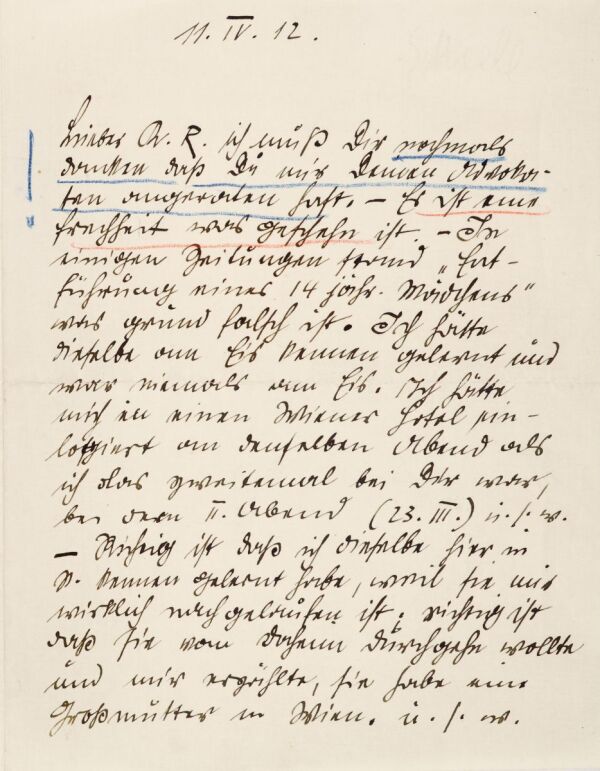 11. IV. 12.
Lieber A. R. ich muß Dir nochmals
danken daß Du mir Deinen Advoka-
ten angeraten hast. – Es ist eine
frechheit was geschehn ist. – In
einigen Zeitungen stand „Ent-
führung eines 14 jähr. Mädchens“
was grund falsch ist. Ich hätte
dieselbe am Eis kennen gelernt und
war niemals am Eis. Ich hätte
mich in einen Wiener Hotel ein-
logiert am denselben Abend als
ich das zweitemal bei Dir war,
bei dem II. Abend (23. III.) u. s. w.
– Richtig ist daß ich dieselbe hier in
N. kennen gelernt habe, weil sie mir
wirklich nachgelaufen ist; richtig ist
daß sie vom daheim durchgehn wollte
und mir erzählte, sie habe eine
Großmutter in Wien. u. s. w.